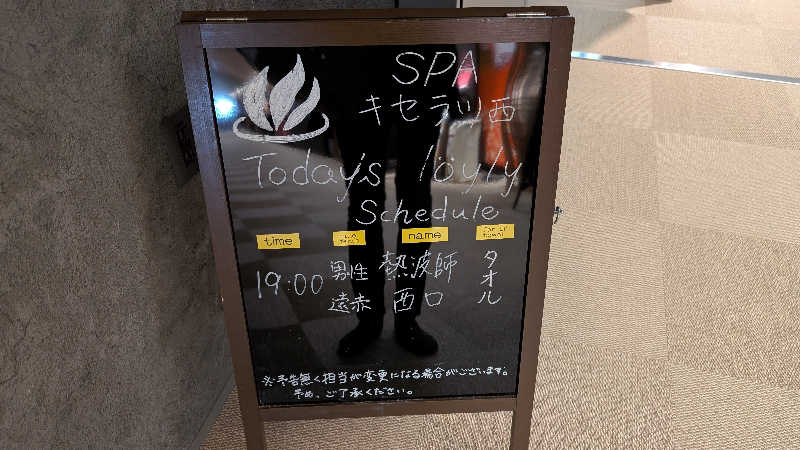 SPA
キセラ川西
Today's löyly
Schedule
time
name
19:00 男性 熱波師 タオル
遠赤 西口
※予告無く担当が変更になる場合がございます。
予め、ご了承ください。